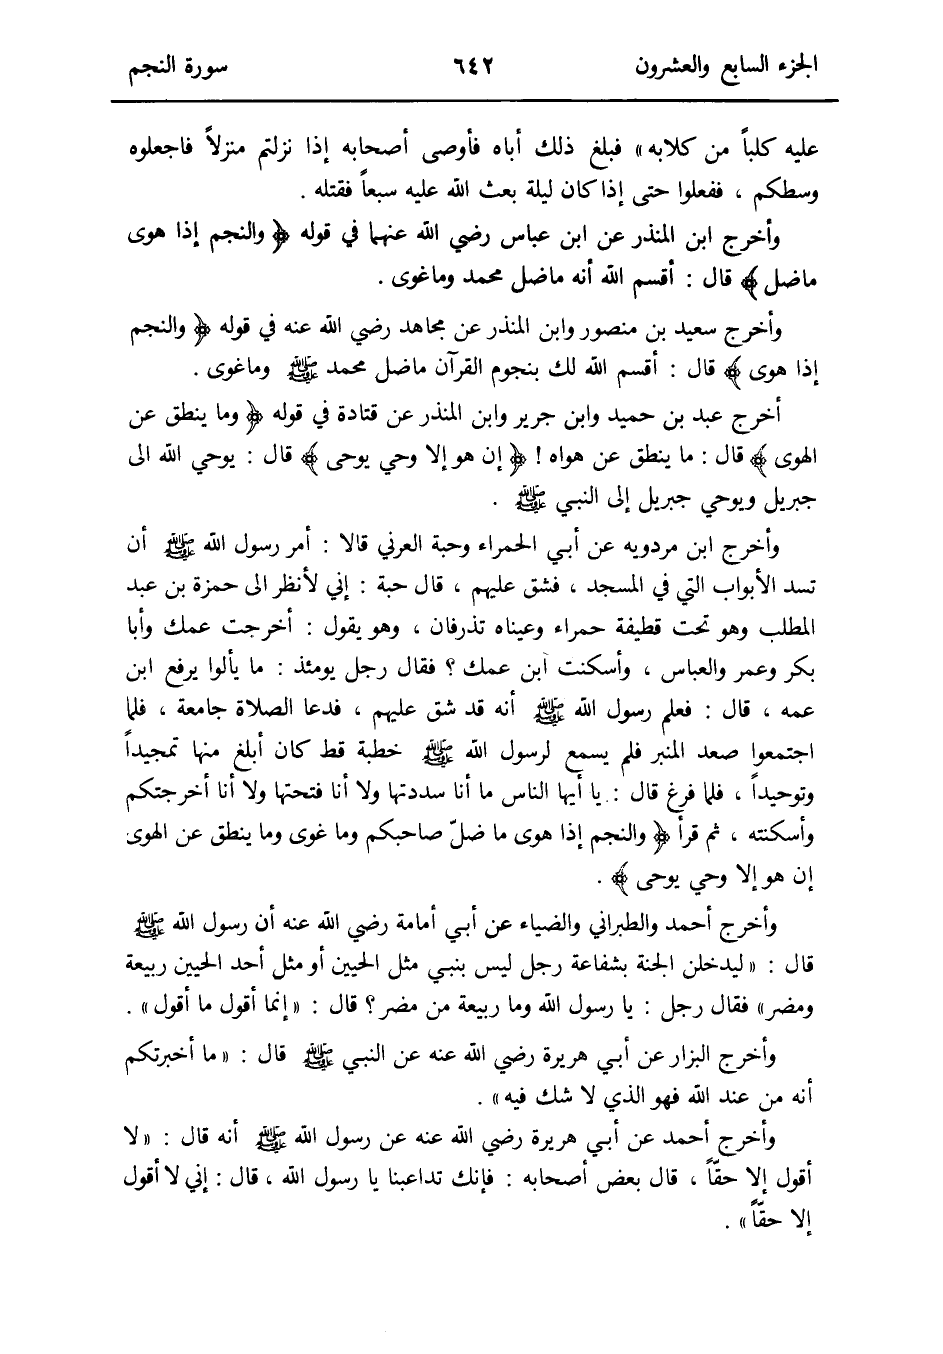 الجزء السابع والعشرون ٦٤٢ سورة النجم
عليه كلباً من كلابه» فبلغ ذلك أباه فأوصى أصحابه إذا نزلتم منزلاً فاجعلوه
وسطكم ، ففعلوا حتى إذا كان ليلة بعث الله عليه سبعاً فقتله .
وأخرج ابن المنذر عن ابن عباس رضي الله عنهما في قوله ﴿ والنجم إذا هوى
ماضل ﴾ قال : أقسم الله أنه ماضل محمد وماغوى .
وأخرج سعيد بن منصور وابن المنذر عن مجاهد رضي الله عنه في قوله ﴿ والنجم
إذا هوى ﴾ قال : أقسم الله لك بنجوم القرآن ماضل محمد ﷺ وماغوى .
أخرج عبد بن حميد وابن جرير وابن المنذر عن قتادة في قوله ﴿ وما ينطق عن
الهوى ﴾ قال : ما ينطق عن هواه ! ﴿ إن هو إلا وحي يوحى ﴾ قال : يوحي الله الى
جبريل ويوحي جبريل إلى النبي ﷺ .
وأخرج ابن مردويه عن أبي الحمراء وحبة العرني قالا : أمر رسول الله ﷺ أن
تسد الأبواب التي في المسجد ، فشق عليهم ، قال حبة : إني لأنظر الى حمزة بن عبد
المطلب وهو تحت قطيفة حمراء وعيناه تذرفان ، وهو يقول : أخرجت عمك وأبا
بكر وعمر والعباس ، وأسكنت ابن عمك ؟ فقال رجل يومئذ : ما يألوا يرفع ابن
عمه ، قال : فعلم رسول الله ﷺ أنه قد شق عليهم ، فدعا الصلاة جامعة ، فلما
اجتمعوا صعد المنبر فلم يسمع لرسول الله ﷺ خطبة قط كان أبلغ منها تمجيداً
وتوحيداً ، فلما فرغ قال : يا أيها الناس ما أنا سددتها ولا أنا فتحتها ولا أنا أخرجتكم
وأسكنته ، ثم قرأ ﴿ والنجم إذا هوى ما ضلّ صاحبكم وما غوى وما ينطق عن الهوى
إن هو إلا وحي يوحى ﴾ .
وأخرج أحمد والطبراني والضياء عن أبي أمامة رضي الله عنه أن رسول الله ﷺ
قال : «ليدخلن الجنة بشفاعة رجل ليس بنبي مثل الحيين أو مثل أحد الحيين ربيعة
ومضر» فقال رجل : يا رسول الله وما ربيعة من مضر ؟ قال : «إنما أقول ما أقول» .
وأخرج البزار عن أبي هريرة رضي الله عنه عن النبي ﷺ قال : «ما أخبرتكم
أنه من عند الله فهو الذي لا شك فيه» .
وأخرج أحمد عن أبي هريرة رضي الله عنه عن رسول الله ﷺ أنه قال : «لا
أقول إلا حقّاً ، قال بعض أصحابه : فإنك تداعبنا يا رسول الله ، قال : إني لا أقول
إلا حقّاً» .